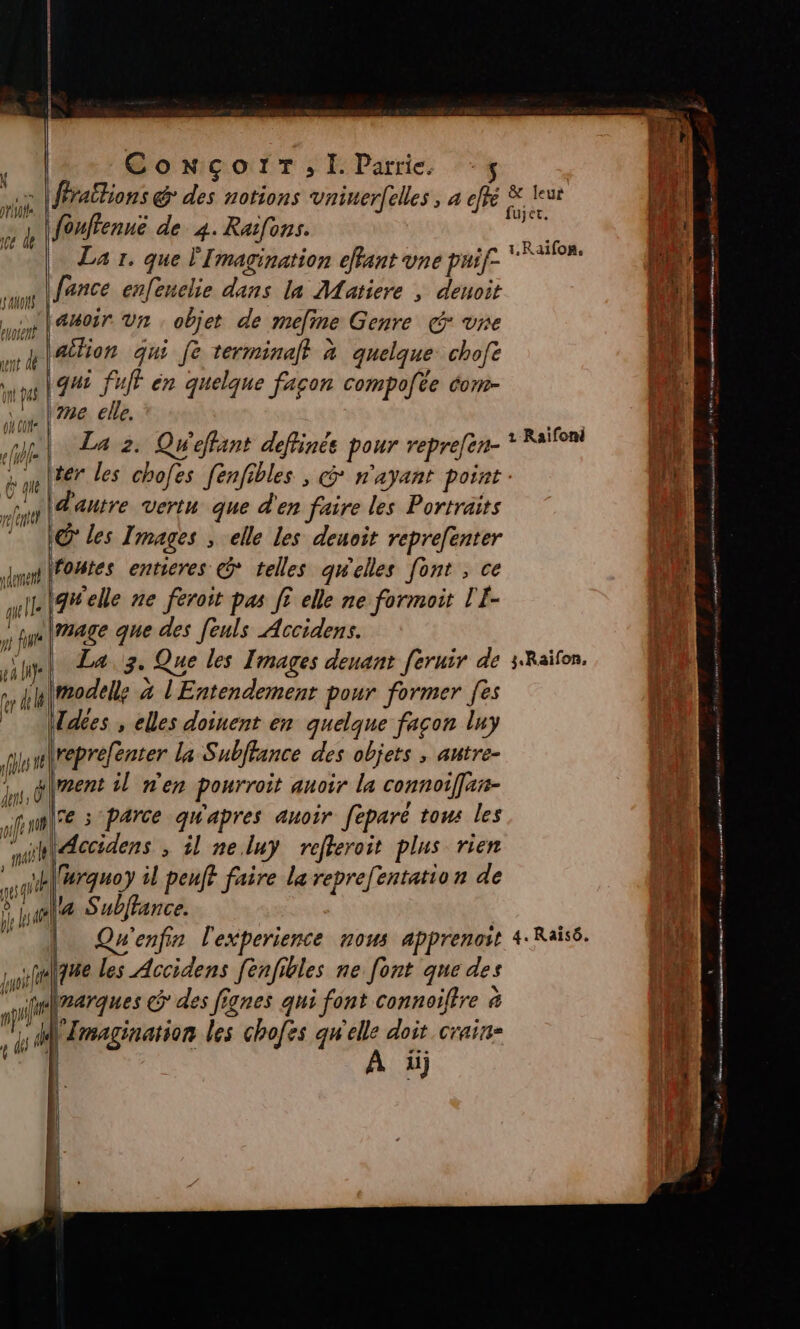 CONÇOIT, I. Partie. 5
ſtractions & des notions vniuerſelles, a eſté
ſouſtenuë de 4. Raiſons.
& leur
ſujet.
La 1. que l'Imagination eſtant vne puiſ-
1. Raiſon.
ſance enſeuelie dans la Matiere, deuoit
auoir vn objet de meſme Genre & vne
action qui ſe terminaſt à quelque choſe
qui fuſt en quelque façon compoſée com-
me elle.
La 2. Qu'eſtant deſtinée pour repreſen-
2 Raiſon
ter les choſes ſenſibles, & n'ayant point
d'autre vertu que d'en faire les Portraits
& les Images, elle les deuoit repreſenter
toutes entieres & telles qu'elles ſont, ce
qu'elle ne feroit pas ſi elle ne formoit l'I-
mage que des ſeuls Accidens.
La 3. Que les Images deuant ſeruir de
3. Raiſon.
modelle à l'Entendement pour former ſes
Idées, elles doiuent en quelque façon luy
repreſenter la Subſtance des objets, autre-
ment il n'en pourroit auoir la connoiſſan-
ce; parce qu'apres auoir ſeparé tous les
Accidens, il ne luy reſteroit plus rien
ſurquoy il peuſt faire la repreſentation de
la Subſtance.
Qu'enfin l'experience nous apprenoit
4. Raisõ.
que les Accidens ſenſibles ne ſont que des
marques & des ſignes qui font connoiſtre à
l'Imagination les choſes qu'elle doit crain-
A iij